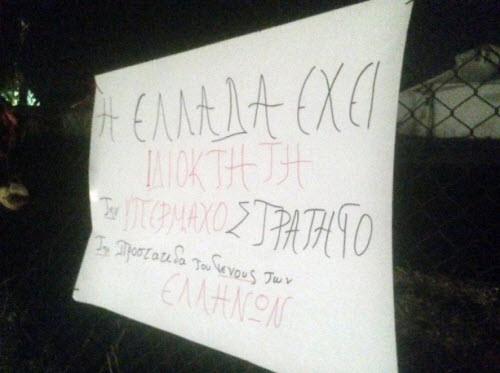 Η ΕΛΛΑΔΑ ΕΧΕΙ
ΙΔΙΟΚΤΗΤΗ
Την ΥΠΕΡΜΑΧΟ ΣΤΡΑΤΗΓΟ
Την Προστατιδα του Γενους των
ΕΛΛΗΝΩΝ